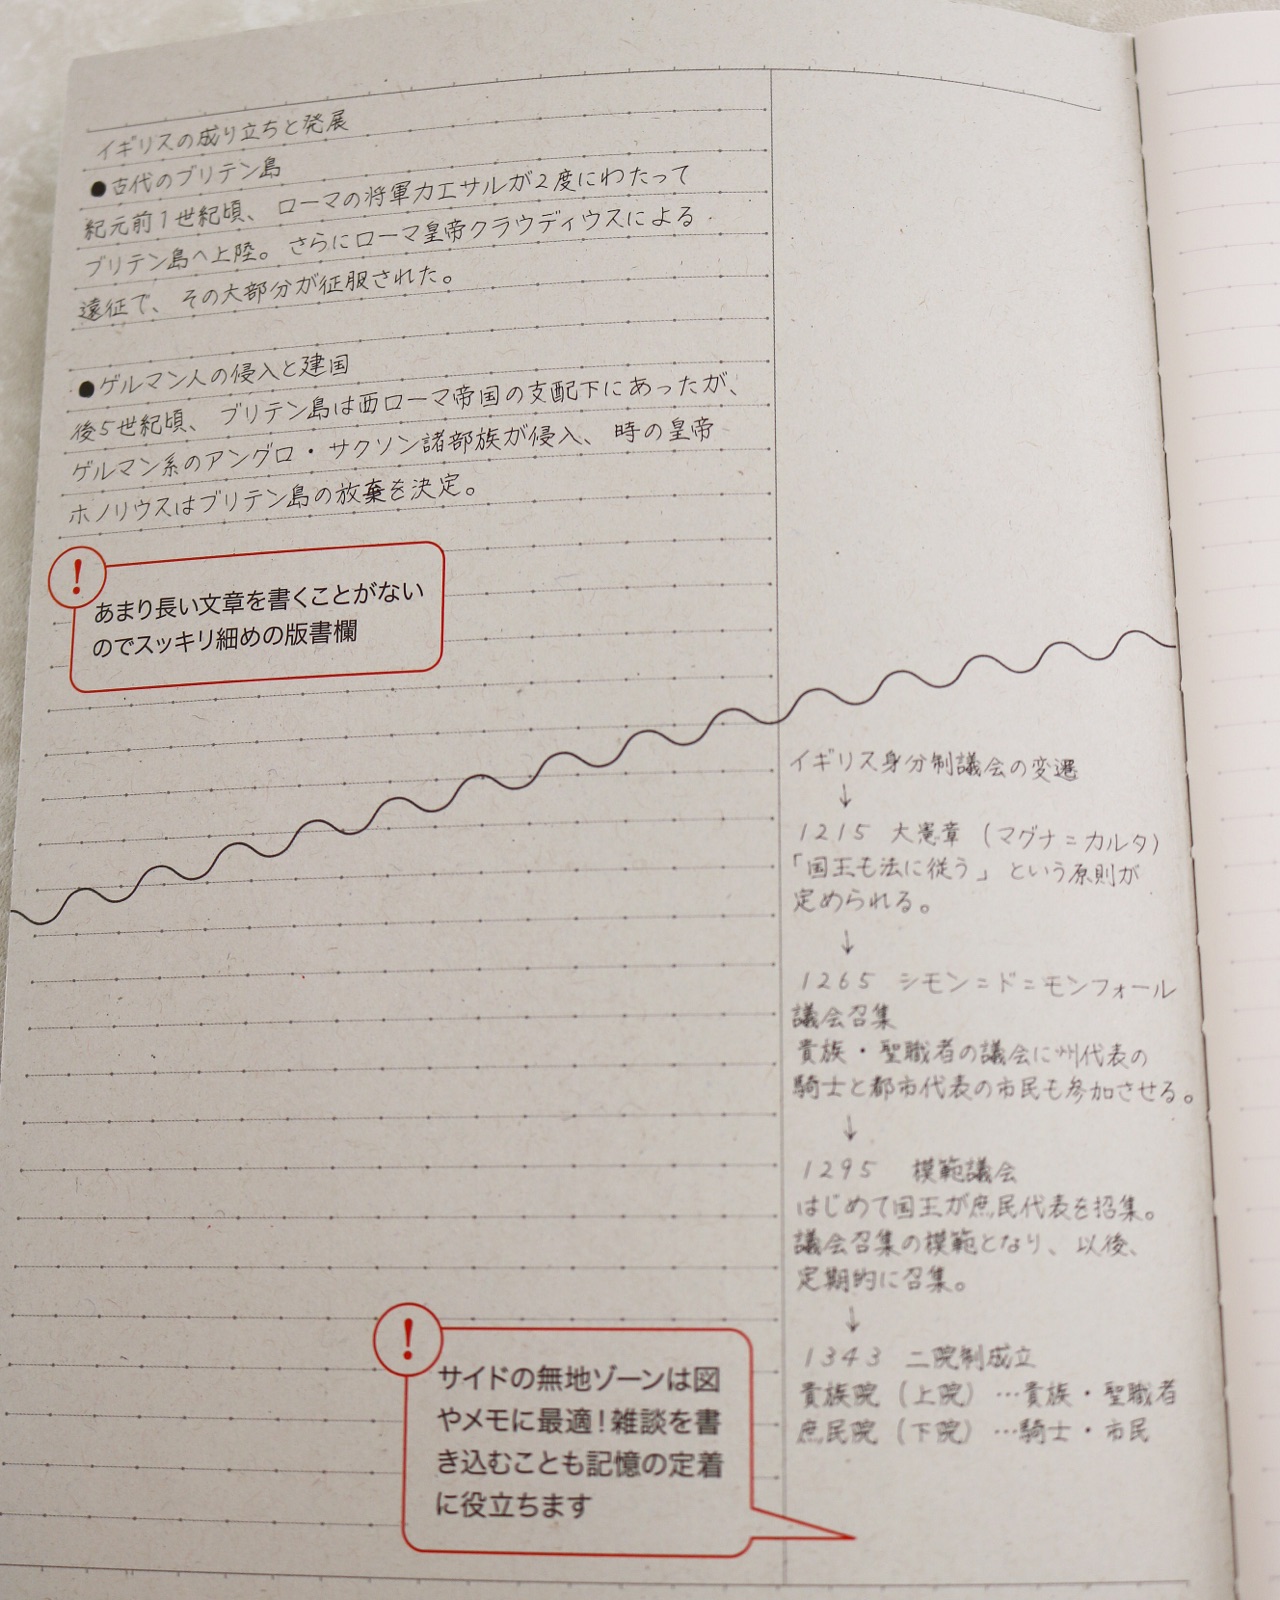 イギリスの成り立ちと発展
●古代のブリテン島
紀元前1世紀頃、ローマの将軍カエサルが2度にわたって
ブリテン島へ上陸。さらにローマ皇帝クラウディウスによる
遠征で、その大部分が征服された。
●ゲルマン人の侵入と建国
後5世紀頃、ブリテン島は西ローマ帝国の支配下にあったが、
ゲルマン系のアングロ・サクソン諸部族が侵入、時の皇帝
ホノリウスはブリテン島の放棄を決定。
!
あまり長い文章を書くことがない
のでスッキリ細めの版書欄
イギリス身分制議会の変遷
↓
1215 大憲章(マグナ=カルタ)
「国王も法に従う」という原則が
定められる。
↓
1265 シモン=ド=モンフォール
議会召集
貴族・聖職者の議会に州代表の
騎士と都市代表の市民も参加させる。
↓
1295 模範議会
はじめて国王が庶民代表を招集。
議会召集の模範となり、以後、
定期的に召集。
↓
1343 二院制成立
貴族院(上院)…貴族・聖職者
庶民院(下院)…騎士・市民
!
サイドの無地ゾーンは図
やメモに最適!雑談を書
き込むことも記憶の定着
に役立ちます